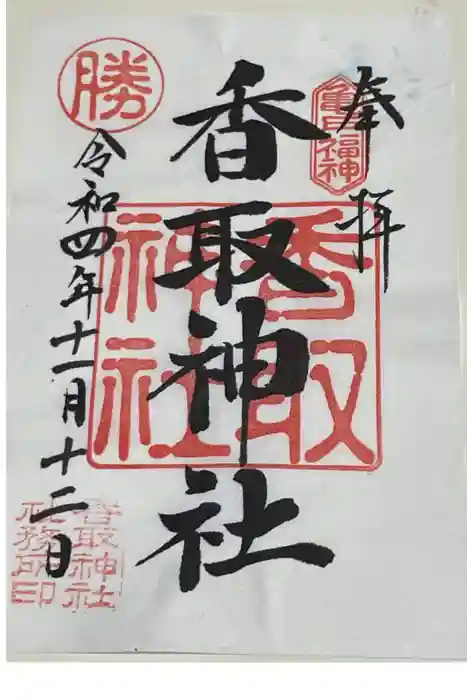 奉拝
亀戸福神
香取神社
香取神社
勝
令和四年十一月十二日
香取神社
社務所印